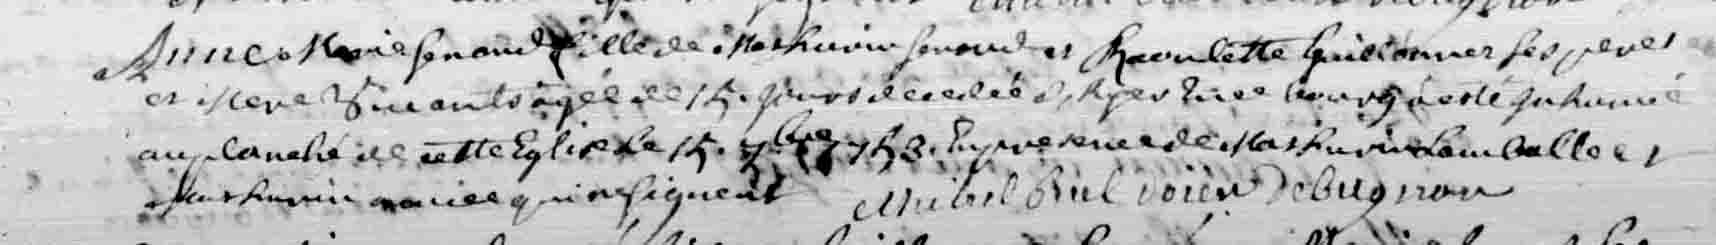 Anne Marie senand fille de Mathurin senand et Raoulette ses peres
et Mere Vivants agée de 15. jours decedée hyer bourg a esté Inhumée
au planché de cette Eglise Le 15. 7.bre 1753. En presence de Mathurin Lamballe et
Mathurin qui ne signent doien De bugnon